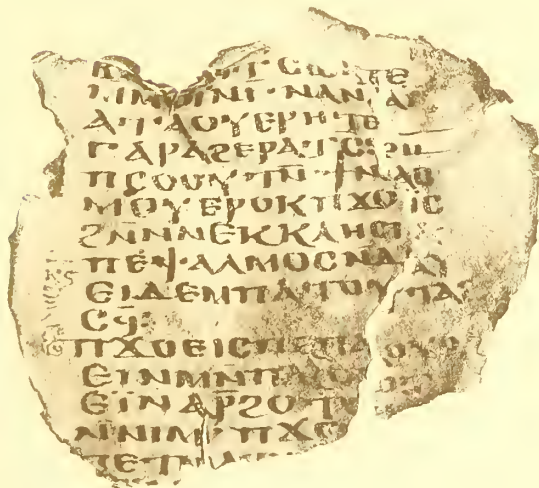 ⲥⲱ ⲧⲉ
ⲙⲙⲟⲓ·ⲛⲁⲛ ⲁ
ⲁⲧⲁⲟⲩⲉⲣⲏⲧⲉ
ⲅⲁⲣⲁϩⲉⲣⲁⲧⲥϩⲙ
ⲡⲥⲟⲟⲩⲧⲛ·ϯⲛⲁⲥ
ⲙⲟⲩⲉⲣⲟⲕⲡϫⲟⲓⲥ
ϩⲛⲛⲛⲉⲕⲕⲗⲏⲥⲓ
ⲡⲉⲯⲁⲗⲙⲟⲥⲛⲇⲁⲩ
ⲉⲓⲇⲉⲙⲡⲁⲧⲟⲩⲧⲁϩ
ⲥϥ:
ⲡϫⲟⲉⲓⲥⲡⲉⲡⲁⲟⲩⲟ
ⲉⲓⲛⲙⲛⲡⲁⲟⲩ
ⲉⲓⲛⲁⲣϩⲟⲧ
ⲛⲛⲓⲙ ⲡϫⲟ
ⲡⲉⲧⲛⲁ